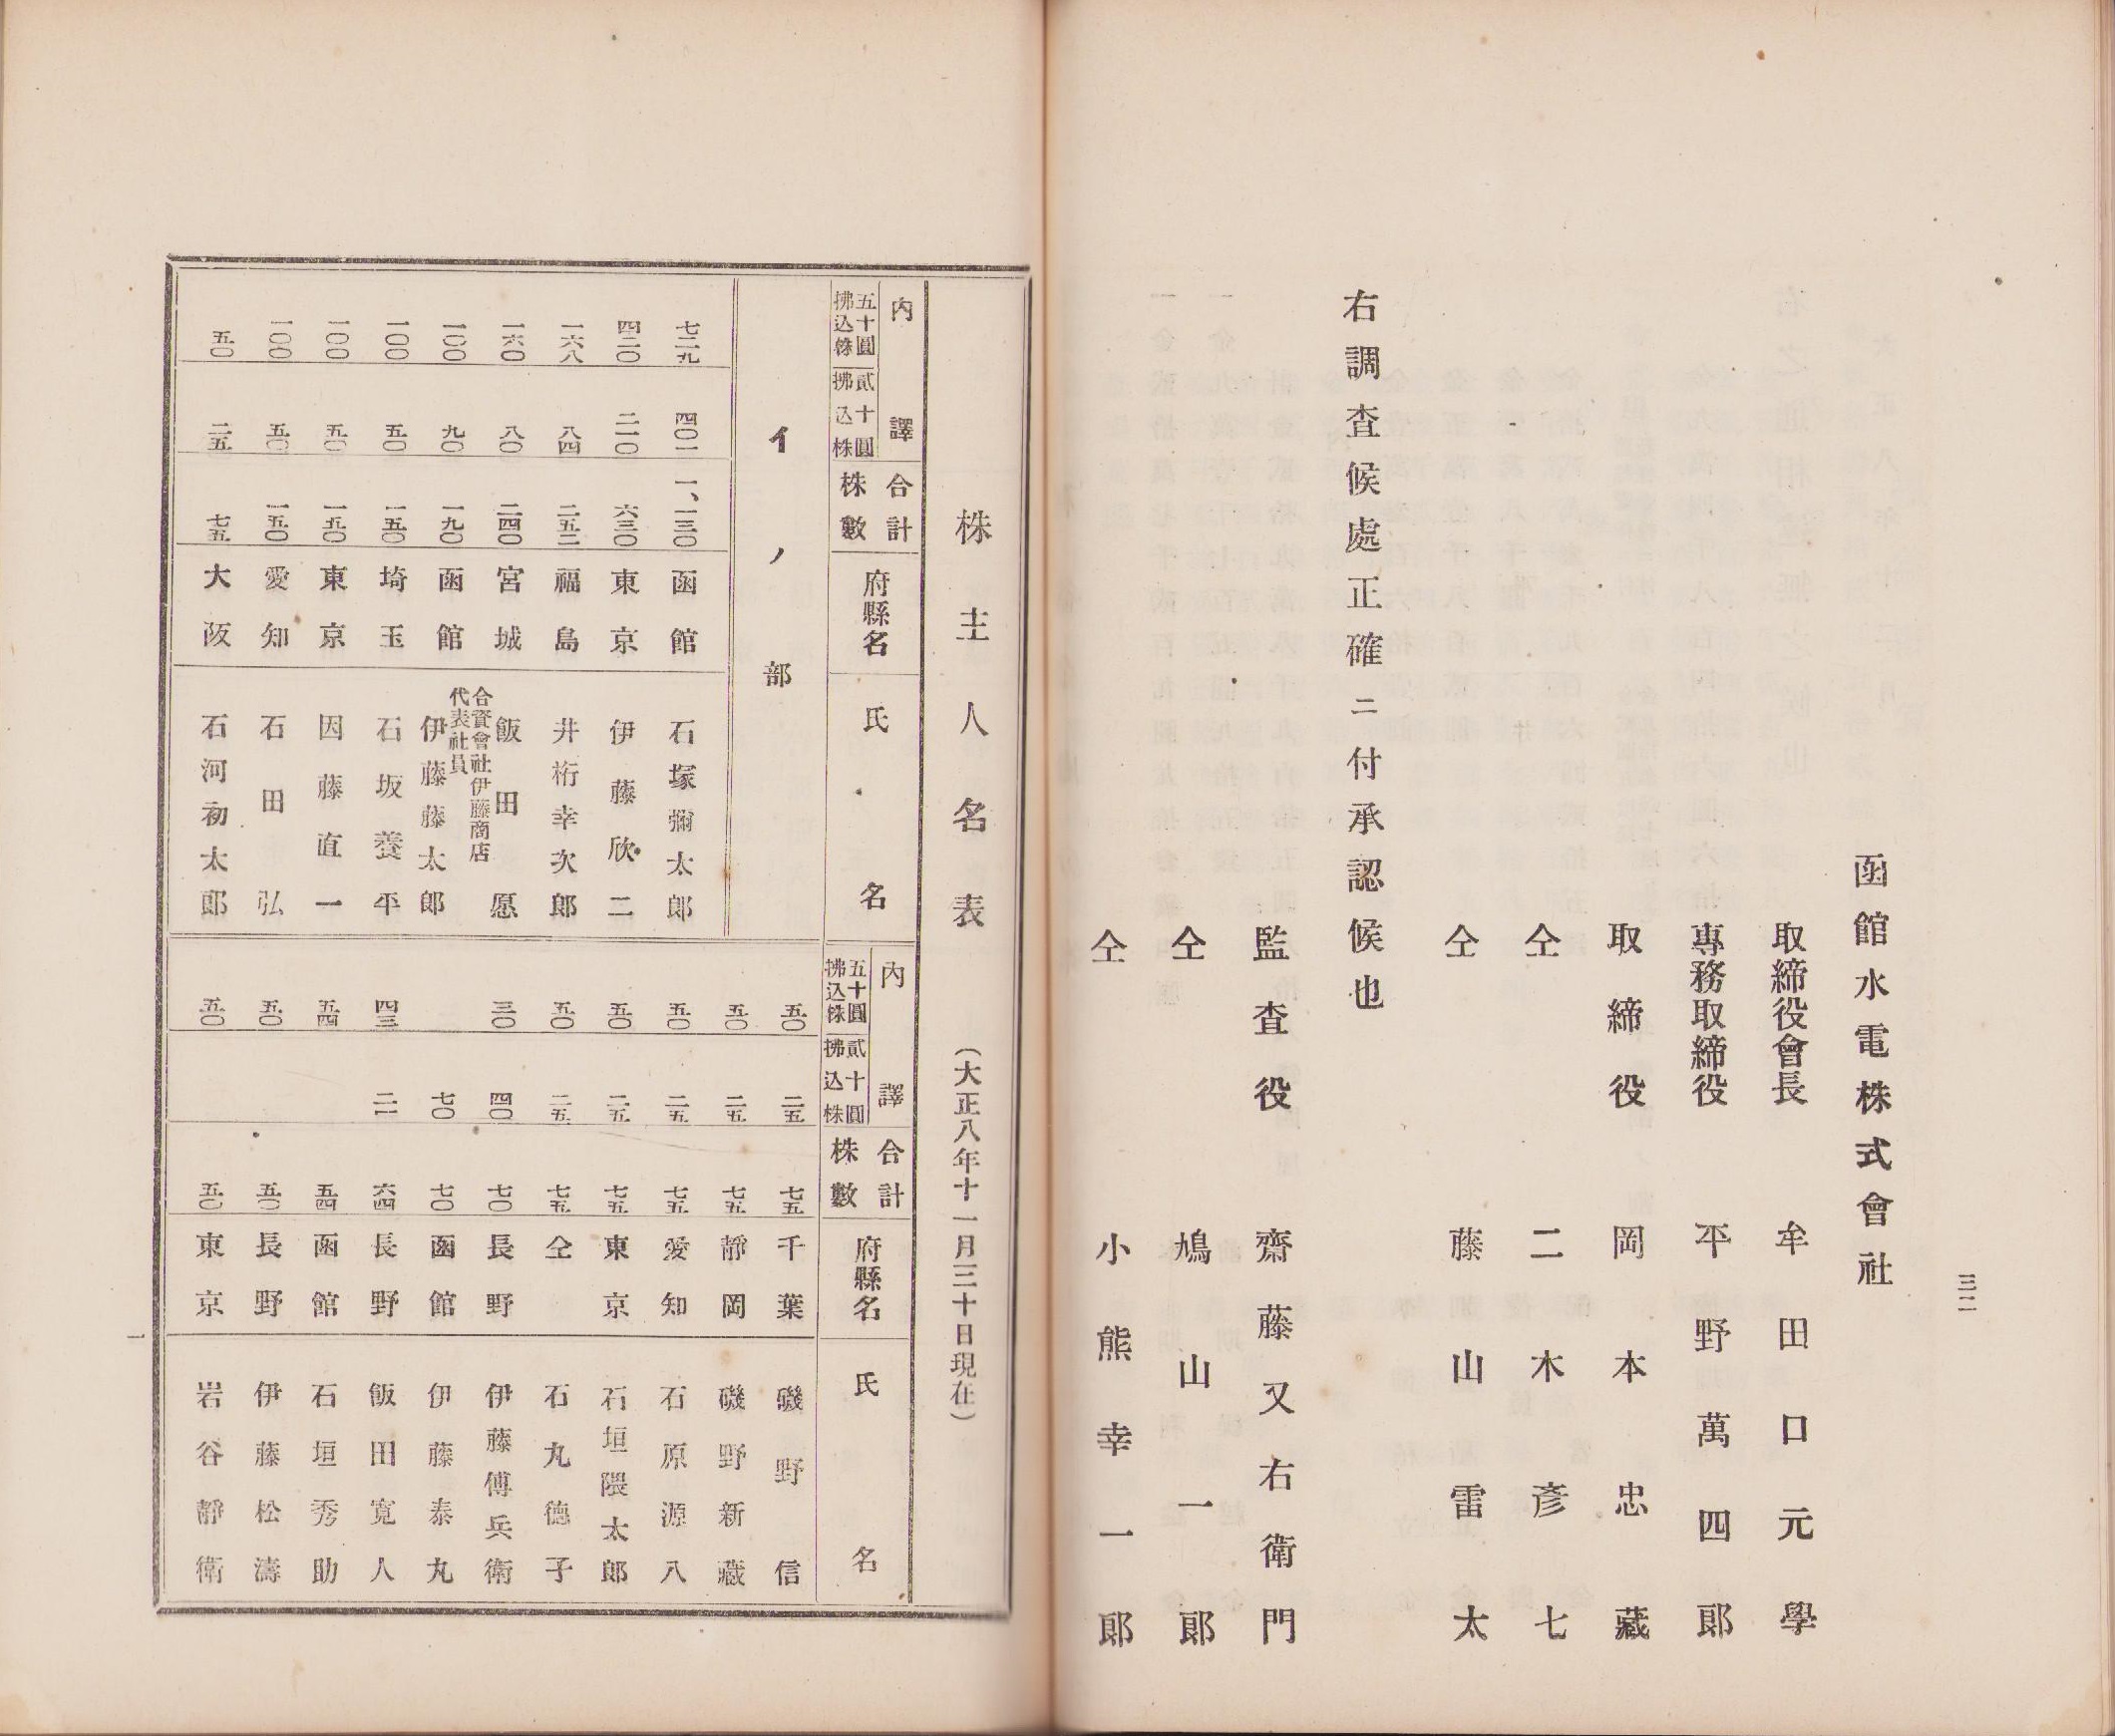 三二
函館水電株式會社
取締役會長 牟田口元學
專務取締役 平野萬四郎
取締役 岡本忠藏
仝 二木彥七
仝 藤山雷太
右調査候處正確ニ付承認候也
監査役 齋藤又右衛門
仝 鳩山一郎
仝 小熊幸一郎
株主人名表 (大正八年十一月三十日現在)
內譯 五十圓拂込株 貳十圓拂込株 合計株數 府縣名 氏名
イノ部
七二九 四〇一 一、一三〇 函館 石塚彌太郎
四二〇 二一〇 六三〇 東京 伊藤欣二
一六八 八四 二五二 福島 井桁幸次郎
一六〇 八〇 二四〇 宮城 飯田愿
一〇〇 九〇 一九〇 函館 合資會社伊藤商店代表社員 伊藤藤太郎
一〇〇 五〇 一五〇 埼玉 石坂養平
一〇〇 五〇 一五〇 東京 因藤直一
一〇〇 五〇 一五〇 愛知 石田弘
五〇 二五 七五 大阪 石河初太郎
內譯 五十圓拂込株 貳十圓拂込株 合計株數 府縣名 氏名
五〇 二五 七五 千葉 磯野信
五〇 二五 七五 靜岡 磯野新藏
五〇 二五 七五 愛知 石原源八
五〇 二五 七五 東京 石垣隈太郎
五〇 二五 七五 仝 石丸德子
三〇 四〇 七〇 長野 伊藤傳兵衛
七〇 七〇 函館 伊藤泰丸
四三 二一 六四 長野 飯田寛人
五四 五四 函館 石垣秀助
五〇 五〇 長野 伊藤松濤
五〇 五〇 東京 岩谷靜衛
一